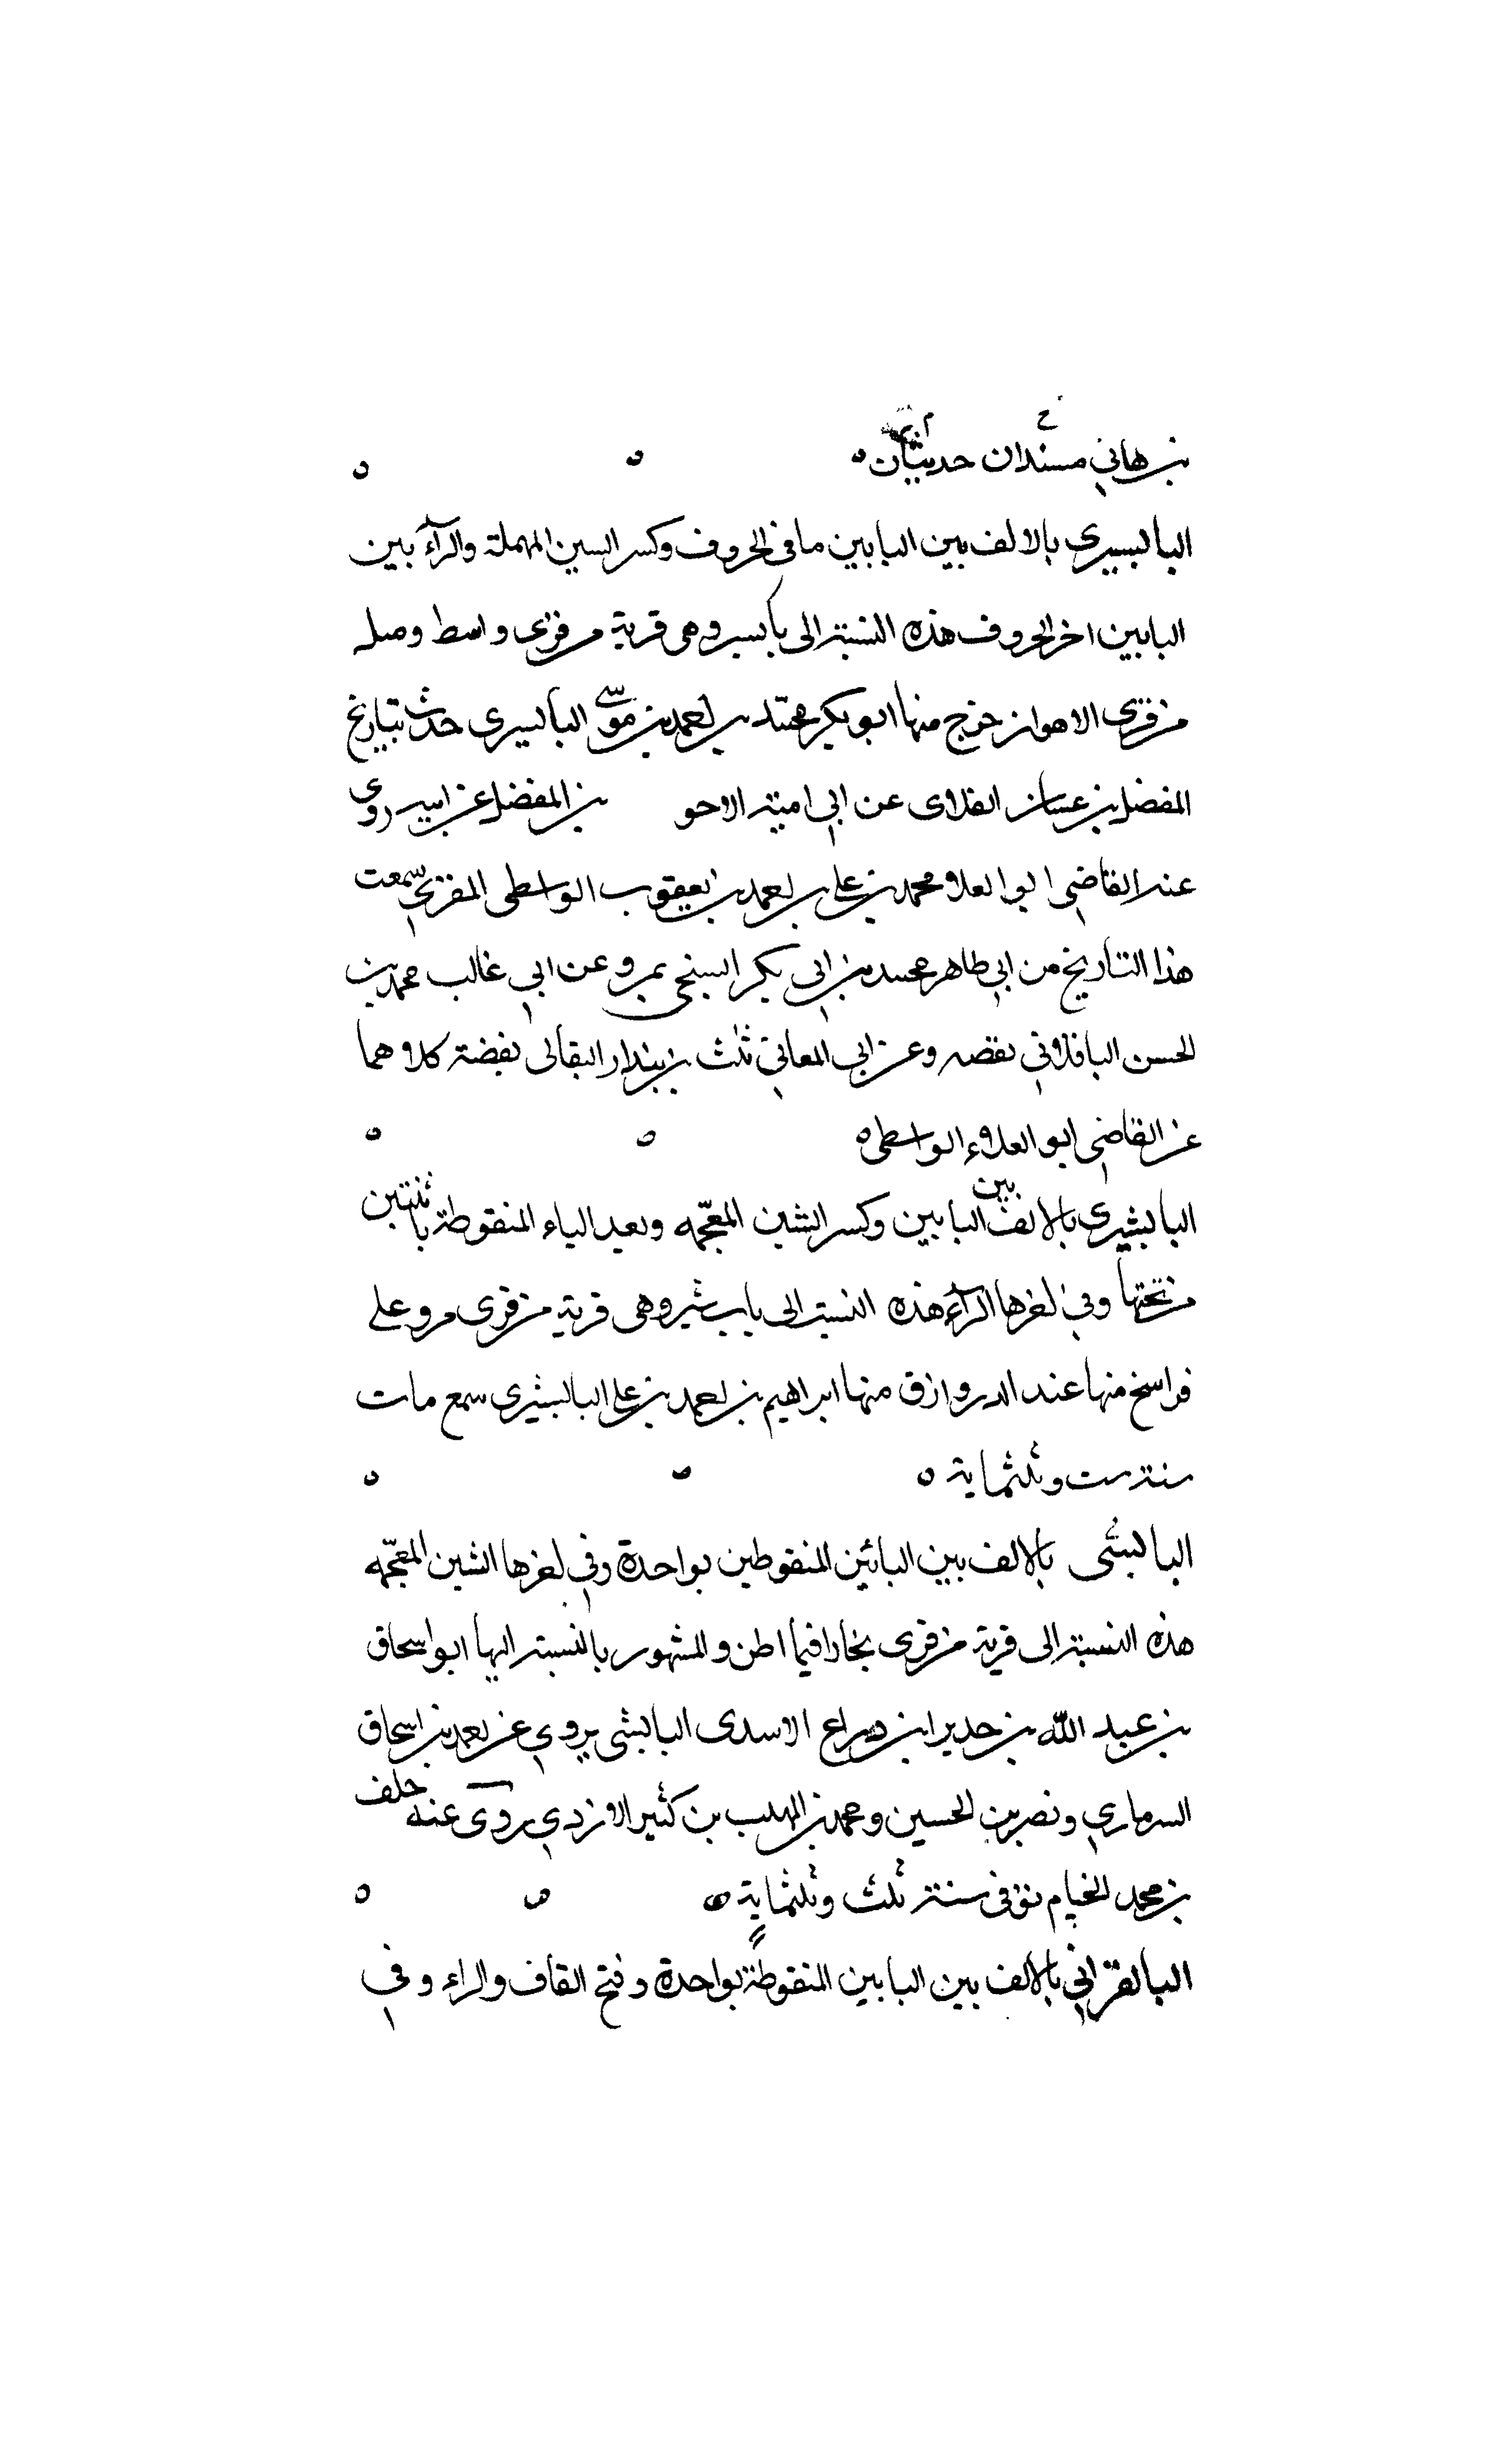 بن هاني مسندان حديثان ه ه ه
البابسيرى بالالف بين البابين ما فى الحروف وكسر السين المهملة والرآء بين
البابين اخر الحروف هذه النسبة الى بابسير وهى قرية من قرى واسط وصله
من قرى الاهواز خرج منها ابو بكر محمد بن احمد بن موسى البابسيرى حدث بتاريخ
المفضل بن غسان الغلابى عن ابي امية الاحو بن المفضل عن ابيه روى
عنه القاضي ابو العلا محمد بن على بن احمد بن يعقوب الواسطى المقرى سمعت
هذا التاريخ من ابي طاهر محمد بن ابي بكر السنجى بمرو عن ابي غالب محمد بن
الحسن الباقلاني بقصه وعن ابي المعاني ثلث بن بندار البقالى بفضة كلاهما
عن القاضي ابو العلاء الواسطى ه ه ه
البابشيرى بالالف بين البابين وكسر الشين المعجمه وبعد الياء المنقوطة باثنتين
من تحتها وفي اخرها الرآء هذه النسبة الى باب شير وهى قرية من قرى مرو على
فراسخ منها عند الدروازق منها ابراهيم بن احمد بن على البابشيرى سمع مات
سنة ست وثلثماية ه ه ه
البابشى بالالف بين البائين المنقوطين بواحدة وفي اخرها الشين المعجمه
هذه النسبة الى قرية من قرى بخارا فيما اظن والمشهور بالنسبة اليها ابو اسحاق
بن عبد الله بن حدير ابن الاسدى البابشى يروي عن احمد بن اسحاق
السرماري ونصر بن الحسين ومحمد بن المهلب بن كثير الازدي روى عنه خلف
بن محمد الخيام توفى سنة ثلث وثلثماية ه ه ه
البابقراني بالالف بين البابين المنقوطة بواحدة وفتح القاف والراء وفي